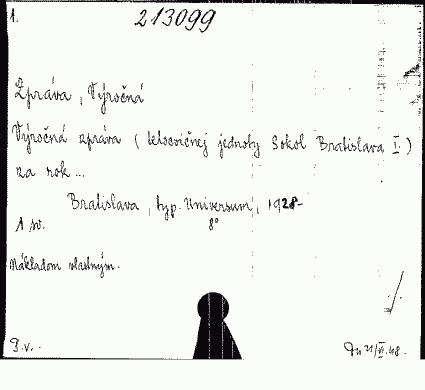 1.
213099
Zpráva, Výročná
Výročná zpráva (telocvičnej jednoty Sokol Bratislava I.)
za rok...
Bratislava, typ. Universum, 1928-
1 sv. 8°
Nákladom vlastným.
D.v.